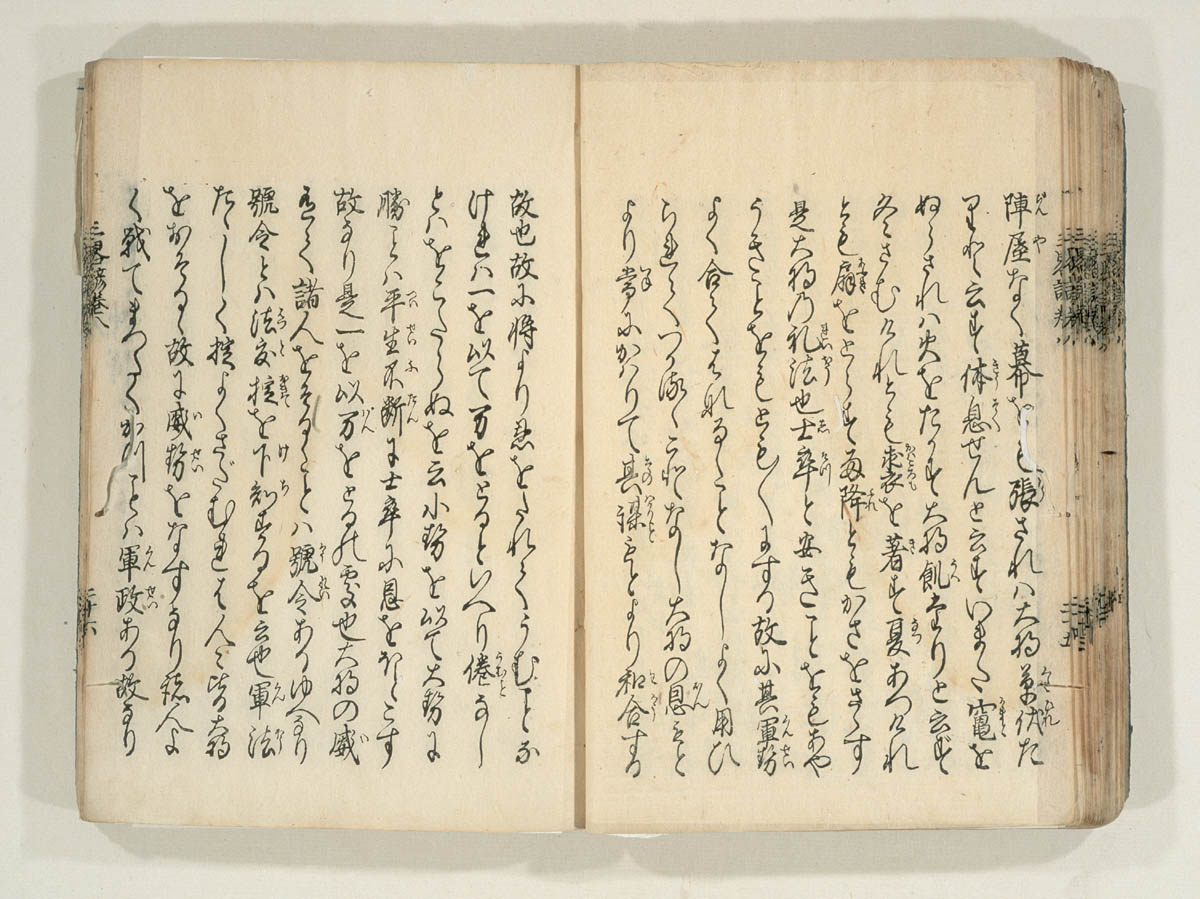 陣屋なく幕をも張されハ大将草伏た
りと云す体息せんと云すいまた竈を
ぬらされハ火をたかす大将飢たりと云ず
冬さむけれとも裘を著す夏あつけれ
とも扇をとらす雨降ともかさをさゝす
是大将乃礼法也士卒と安きことをもあや
うきことをもともにする故に其軍勢
よく合てはなるゝことなしよく用ひ
られてつかるゝことなし大将の恩もと
より常にかハりて其謀もとより和合する
故也故に将より恩をたれてうむことな
けれハ一を以て万をとるといへり倦なし
とハをこたらぬを云小勢を以て大勢に
勝ことハ平生不断に士卒に恩をほとこす
故なり是一を以万をとるの処也大将の威
有て諸人をそるゝことハ號令あるゆへなり
號令とハ法度掟を下知するを云也軍法
たゝしく掟よくさだむれはんミな大将
をおそるゝ故に威勢をなすなり諸人よ
く戦てまつたくかつことハ軍政ある故なり
三畧諺巻八
二十六